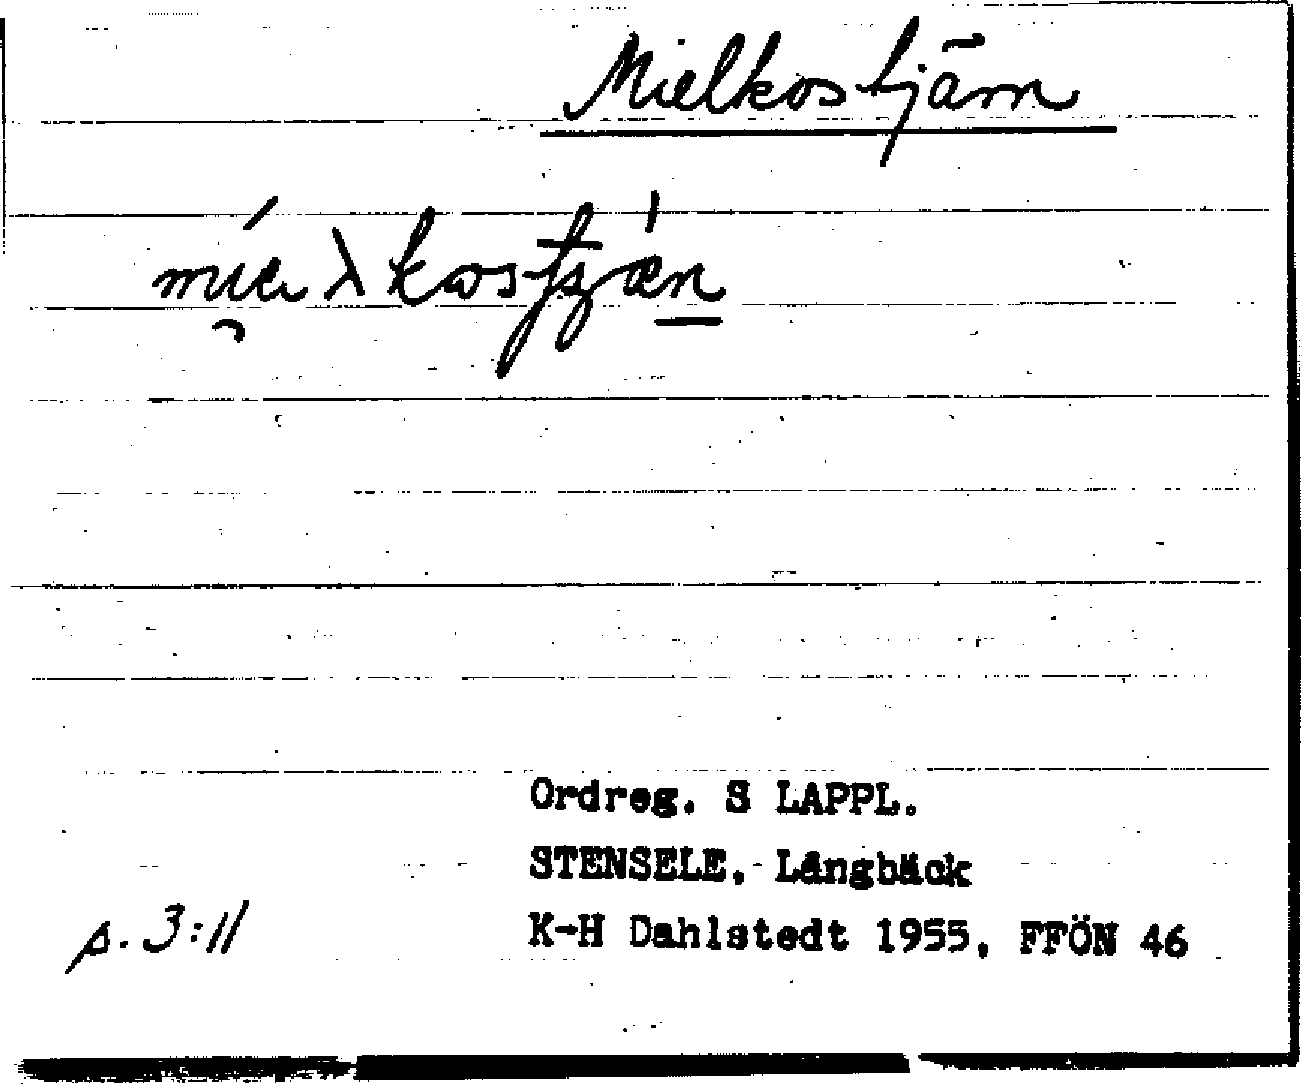 Mielkostjärn
Ordreg. S LAPPL.
STENSELE. Långbäck
s. 3:11
K-H Dahlstedt 1955, FFÖN 46